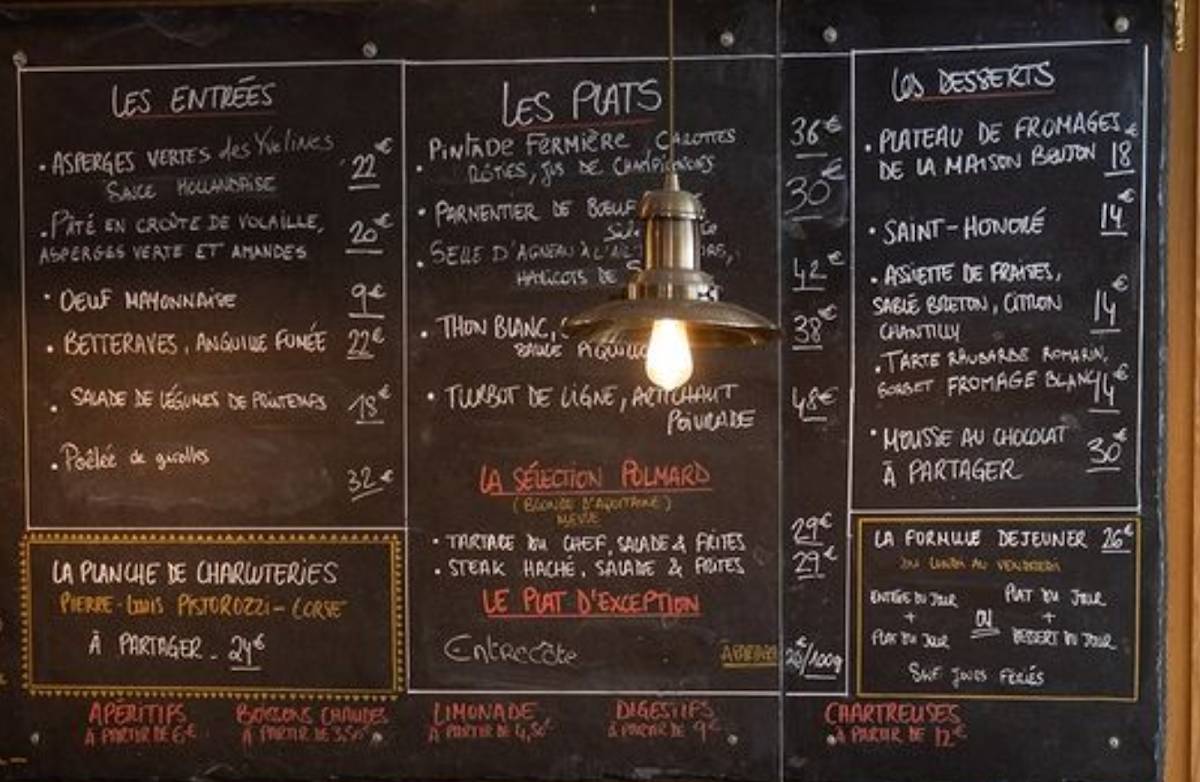 LES ENTRÉES
• ASPERGES VERTES des Yvelines 22€
SAUCE HOLLANDAISE
• PÂTÉ EN CROÛTE DE VOLAILLE, 20€
ASPERGES VERTE ET AMANDES
• OEUF MAYONNAISE 9€
• BETTERAVES, ANGUILLE FUMÉE 22€
• SALADE DE LÉGUMES DE PRINTEMPS 18€
• Poêlée de girolles
32€
LA PLANCHE DE CHARCUTERIES
PIERRE-LOUIS PISTOROZZI - CORSE
À PARTAGER - 24€
LES PLATS
PINTADE FERMIÈRE, CAROTTES 36€
RÔTIES, JUS DE CHAMPIGNONS
• PARMENTIER DE BŒUF 30€
• SELLE D'AGNEAU À L'AIL
HARICOTS DE 42€
• THON BLANC, 38€
SAUCE PIQUILLO
• TURBOT DE LIGNE, ARTICHAUT 48€
POIVRADE
LA SÉLECTION POLMARD
(BLONDE D'AQUITAINE)
• TARTARE DU CHEF, SALADE & FRITES 29€
• STEAK HACHÉ, SALADE & FRITES 29€
LE PLAT D'EXCEPTION
Entrecôte À PARTAGER /100g
LES DESSERTS
• PLATEAU DE FROMAGES
DE LA MAISON BEUJON 18€
• SAINT-HONORÉ 14€
• ASSIETTE DE FRAISES,
SABLÉ BRETON, CITRON 14€
CHANTILLY
• TARTE RHUBARBE ROMARIN,
SORBET FROMAGE BLANC 14€
• MOUSSE AU CHOCOLAT 30€
À PARTAGER
LA FORMULE DEJEUNER 26€
DU LUNDI AU VENDREDI
ENTRÉE DU JOUR
+
PLAT DU JOUR
OU
PLAT DU JOUR
+
DESSERT DU JOUR
SAUF JOURS FÉRIÉS
APÉRITIFS
À PARTIR DE 6€
BOISSONS CHAUDES
À PARTIR DE 3,50€
LIMONADE
À PARTIR DE 4,50€
DIGESTIFS
À PARTIR DE 9€
CHARTREUSES
À PARTIR DE 12€